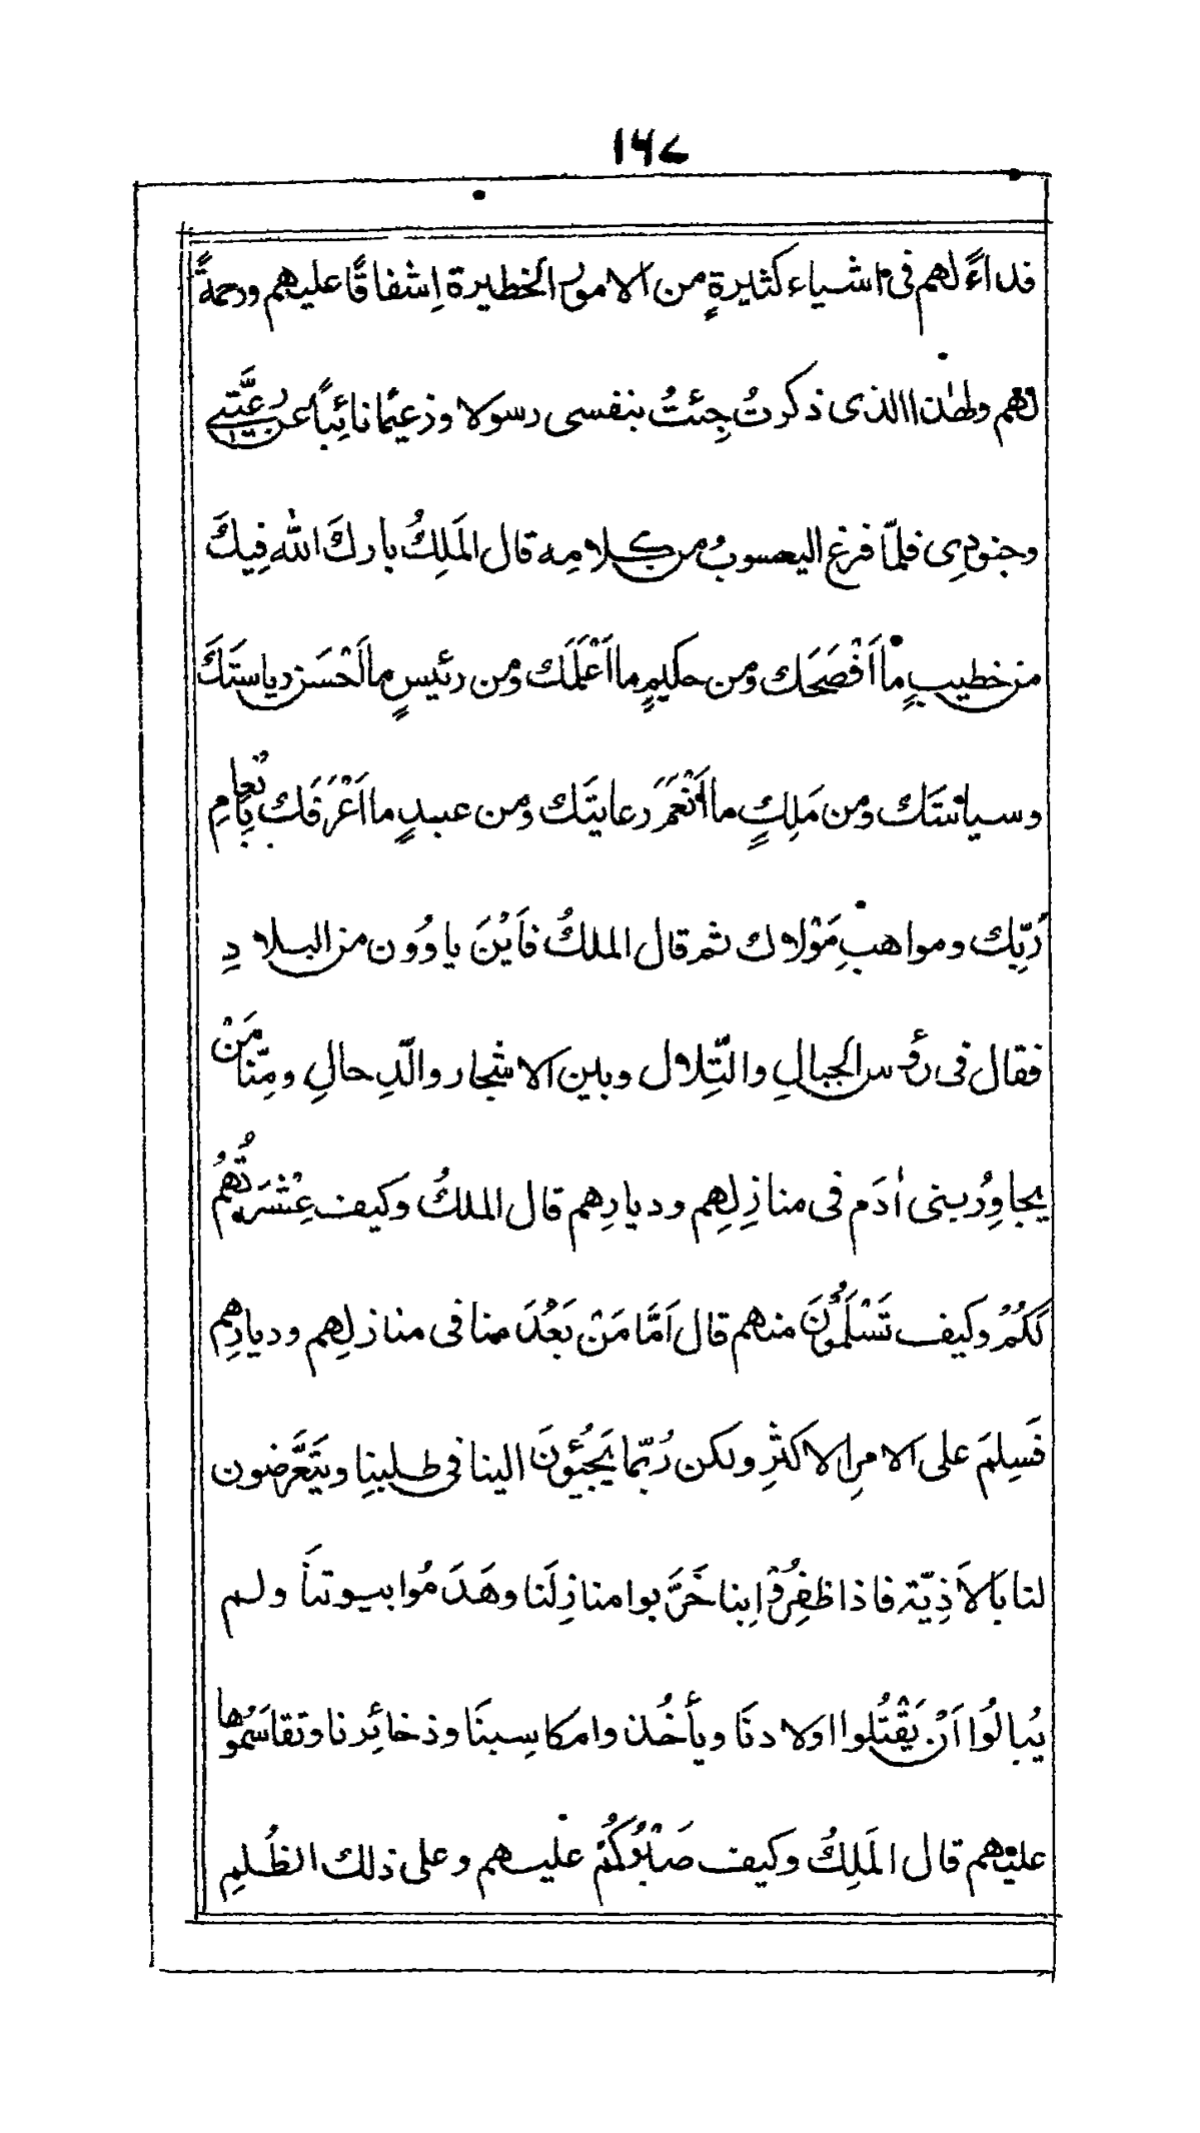 ١٦٧
فداءً لهم فى اشياء كثيرةٍ من الامور الخطيرة اِشفاقًا عليهم ورحمةً
لهم ولهٰذا الذى ذكرتُ جِئتُ بنفسى رسولا وزعيمًا نائِبًا عن رعِيَّتى
وجنودِى فلمّا فرغ اليعسوبُ من كلامِه قال المَلِكُ بارك الله فِيكَ
من خطيبٍ ما اَفْصَحَك ومن حكيمٍ ما اَعْلَمَك ومن رئيسٍ ما اَحْسَن رياستَكَ
وسياستَك ومن مَلِكٍ ما اَنْعَمَ رعايتَك ومن عبدٍ ما اَعْرَفَك بِاِنعامِ
رَبِّك ومواهبِ مَوْلاك ثم قال الملكُ فاَيْنَ ياوُون من البلادِ
فقال فى رؤس الجبالِ والتِّلال وبين الاشجار والدِّحالِ ومِنّا مَنْ
يجاوِرُ بنى اٰدَم فى منازِلِهِم وديارِهِم قال الملكُ وكيف عِشْرَتُهُمْ
لكُمْ وكيف تَسْلَمُوْنَ منهم قال اَمَّا مَنْ بَعُدَ منا فى منازلِهِم وديارِهِم
فَسِلِمَ على الامرِ الاكثرِ ولكن رُبّما يَجِيْئُونَ الينا فى طلبِنا ويَتَعَرَّضون
لنا بالاَذِيّة فاذا ظفِرُوْا بنا خَرَّبوا منازِلَنا وهَدَمُوا بيوتنَا ولم
يُبالُوَا اَنْ يَقْتُلُوا اولادنَا ويأخُذوا مكاسِبنَا وذخائِرنا وتقاسَمُوْها
عليْهم قال المَلِكُ وكيف صَبْرُكُمْ عليهم وعلى ذلك الظُلمِ